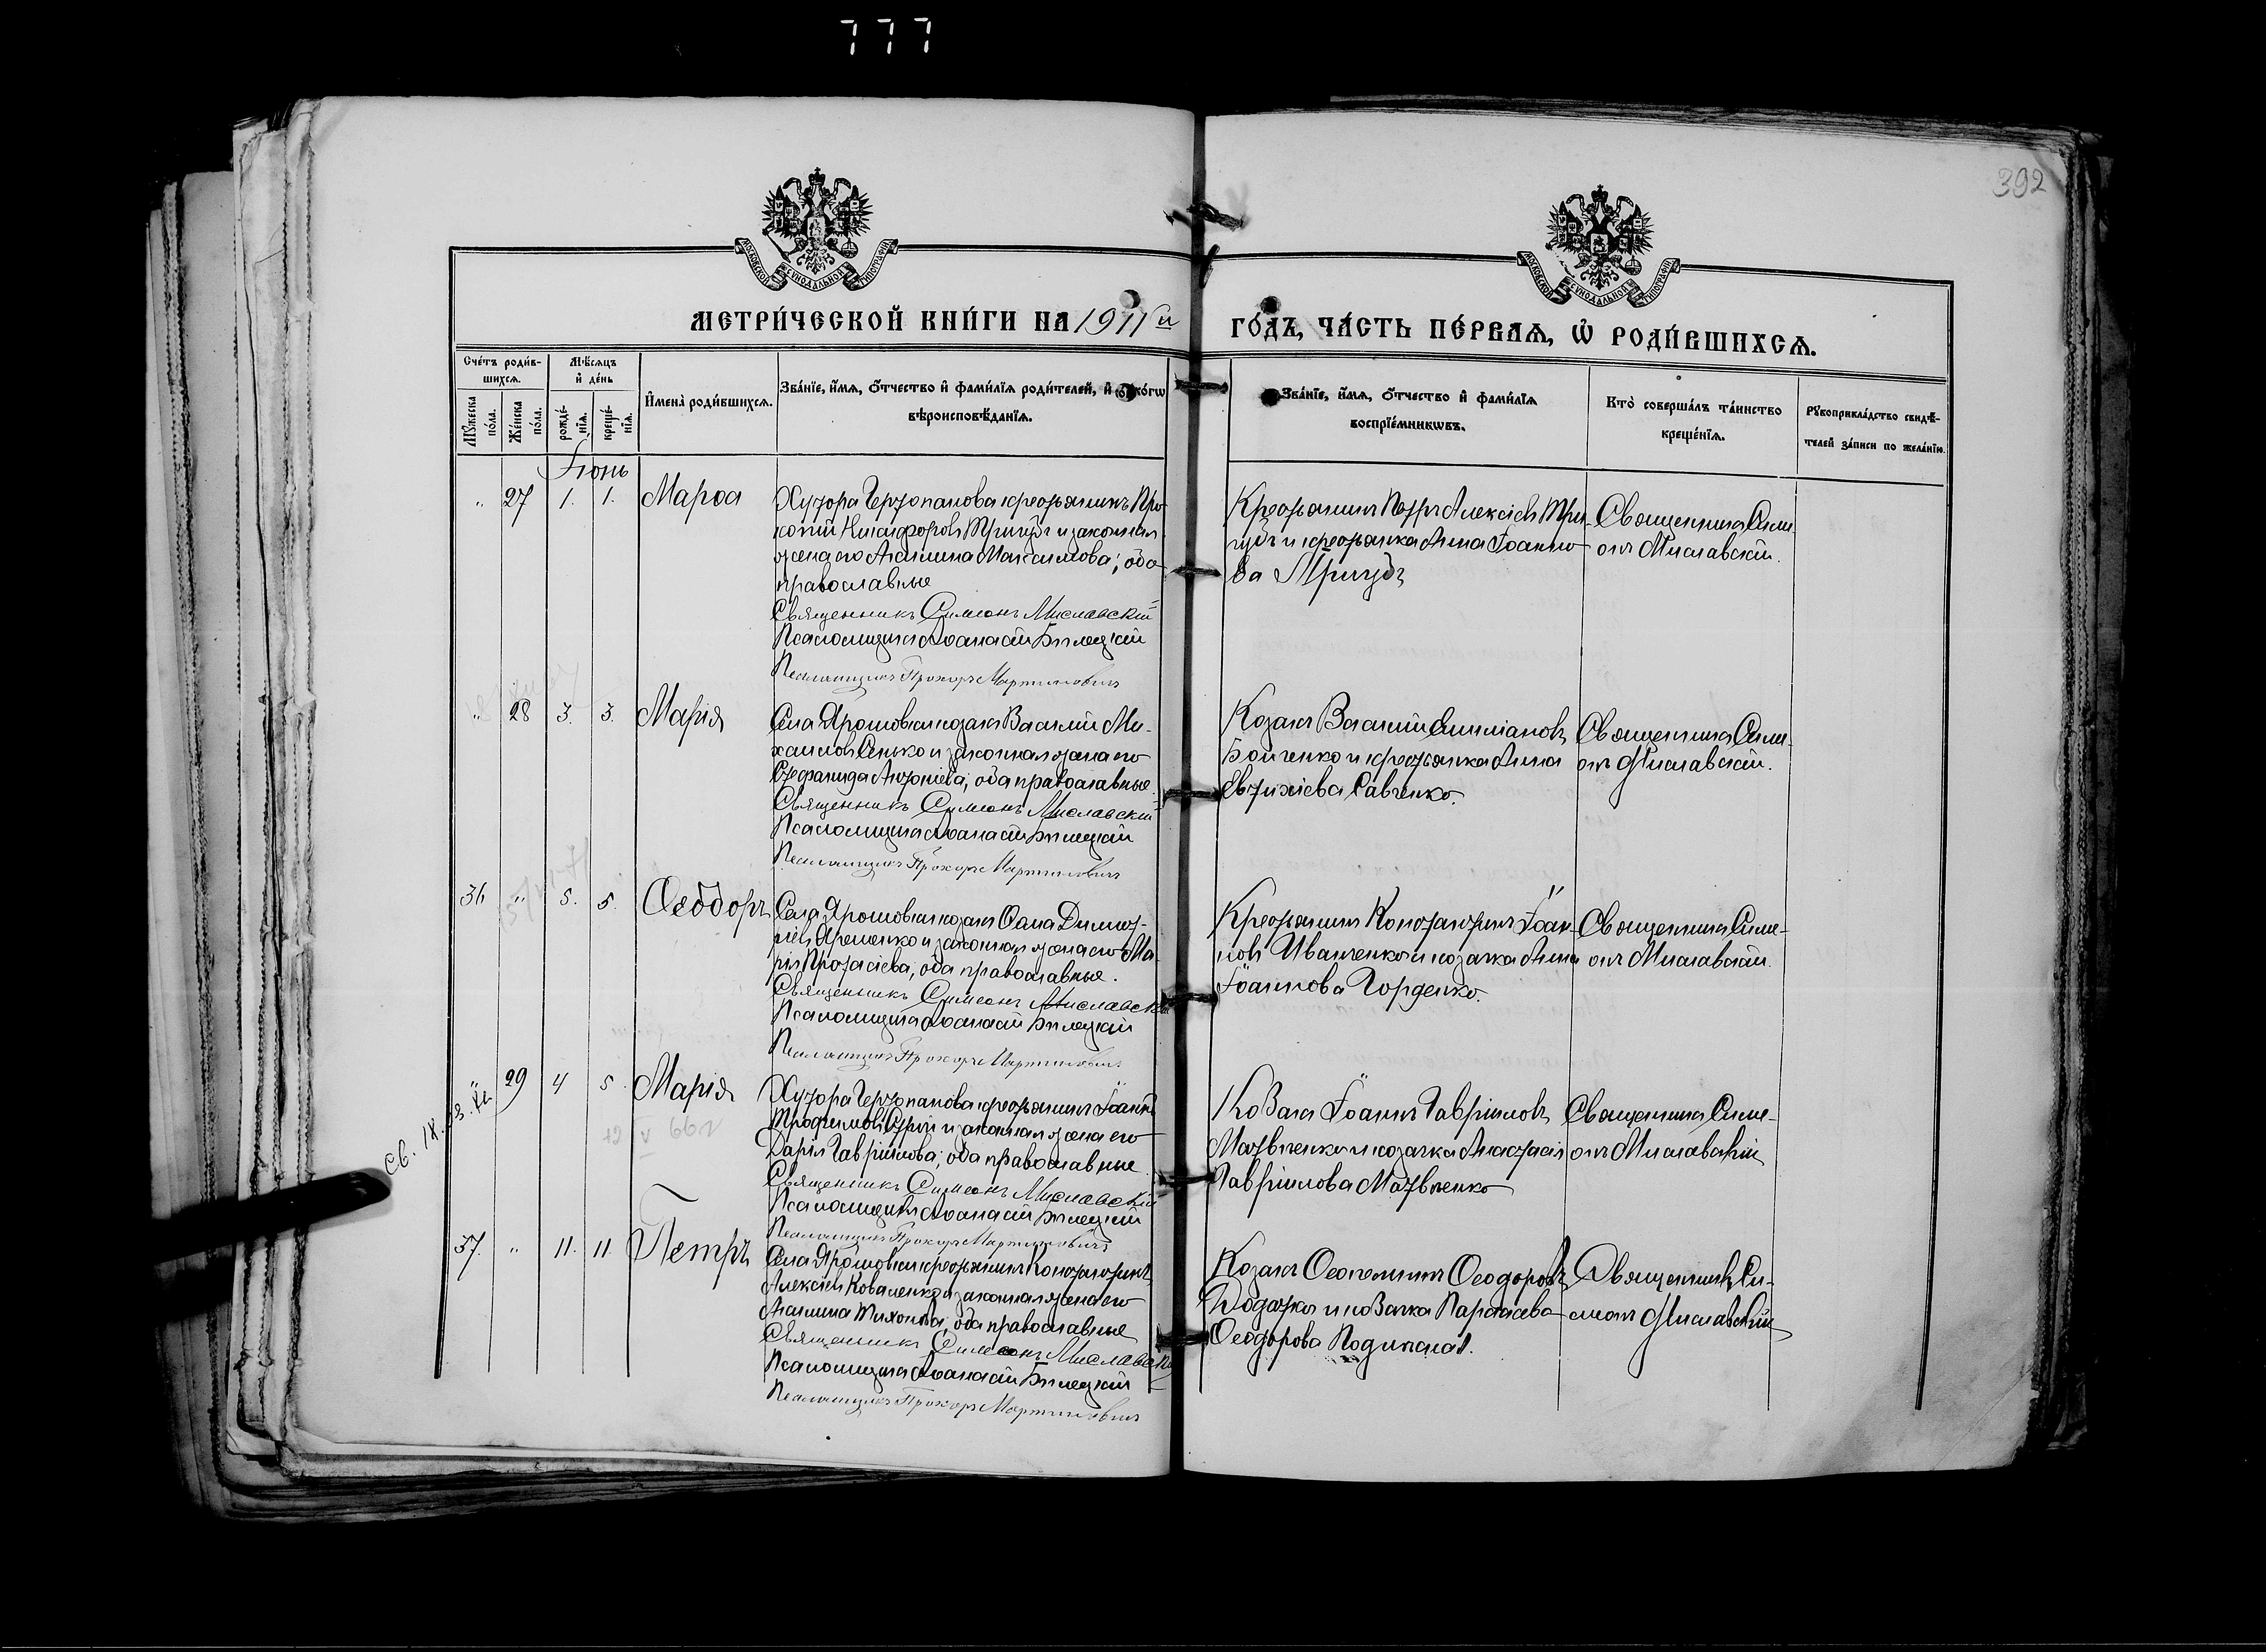 777
392
МОСКОВСКОЙ СѴНОДАЛЬНОЙ ТИПОГРАФІИ
МОСКОВСКОЙ СѴНОДАЛЬНОЙ ТИПОГРАФІИ
МЕТРИ́ЧЕСКОЙ КНИ́ГИ НА 1911й ГО́ДЪ, ЧА́СТЬ ПЕ́РВАѦ, Ѽ РОДИ́ВШИХСѦ.
Сче́тъ роди́в-
шихсѧ.
Мѣ́сѧцъ
и҆ де́нь
Мꙋ́жеска по́ла.
Же́нска по́ла.
рожде́-
нїѧ.
креще́-
нїѧ.
И҆мена̀ роди́вшихсѧ.
Зва́нїе, и҆́мѧ, ѻ҆́тчество и҆ фами́лїѧ роди́телей, и҆ како́гѡ
вѣроисповѣ́данїѧ.
Зва́нїе, и҆́мѧ, ѻ҆́тчество и҆ фами́лїѧ
воспрїе́мникѡвъ.
Кто̀ соверша́лъ та́инство
креще́нїѧ.
Рꙋкоприкла́дство свидѣ́-
телей за́писи по жела́нїю.
Іюнь
" 27 1. 1. Марѳа
Хутора крестьянинъ Про-
копій Никифоровъ Тригубъ и законная
жена его Акилина Максимова; оба
православные
Священникъ Симеонъ Миславскій
Псаломщикъ Аѳанасій Билецкій
Псаломщикъ Прохоръ Мартиновичъ
Крестьянинъ Петръ Алексіевъ Три-
губъ и крестьянка Анна Іоанно-
ва Тригубъ
Священникъ Симе-
онъ Миславскій.
" 28 3. 3. Марія
Села Ярошовки козакъ Василій Ми-
хаиловъ Сенько и законная жена его
Стефанида Антоніева; оба православные.
Священникъ Симеонъ Миславскій
Псаломщикъ Аѳанасій Билецкій
Псаломщикъ Прохоръ Мартиновичъ
Козакъ Василій
Бойченко и крестьянка Анна
Евтихіева Савченко.
Священникъ Симе-
онъ Миславскій.
36 " 5. 5. Ѳеодоръ
Села Ярошовки козакъ Ѳома Димит-
ріевъ Яременко и законная жена его Ма-
рія Протасіева; оба православные.
Священникъ Симеонъ Миславскій
Псаломщикъ Аѳанасій Билецкій
Псаломщикъ Прохоръ Мартиновичъ
Крестьянинъ Кондратъ Іоан-
новъ Иванченко и козачка Анна
Іоаннова Горденко.
Священникъ Симе-
онъ Миславскій.
" 29 4 5. Марія
Хутора крестьянинъ Іоаннъ
Трофимовъ и законная жена его
Дарія Гавріилова; оба православные
Священникъ Симеонъ Миславскій
Псаломщикъ Аѳанасій Билецкій
Псаломщикъ Прохоръ Мартиновичъ
Козакъ Іоаннъ Гавріиловъ
Матвіенко и козачка Анастасія
Гавріилова Матвіенко
Священникъ Симе-
онъ Миславскій
37. " 11. 11. Петръ
Села Ярошовки крестьянинъ
Алексіевъ Коваленко и законная жена его
Акилина Тихонова; оба православные
Священникъ Симеонъ Миславскій
Псаломщикъ Аѳанасій Билецкій
Псаломщикъ Прохоръ Мартиновичъ
Козакъ Ѳеодоровъ
и козачка Параскева
Ѳеодорова
Священникъ Си-
меонъ Миславскій